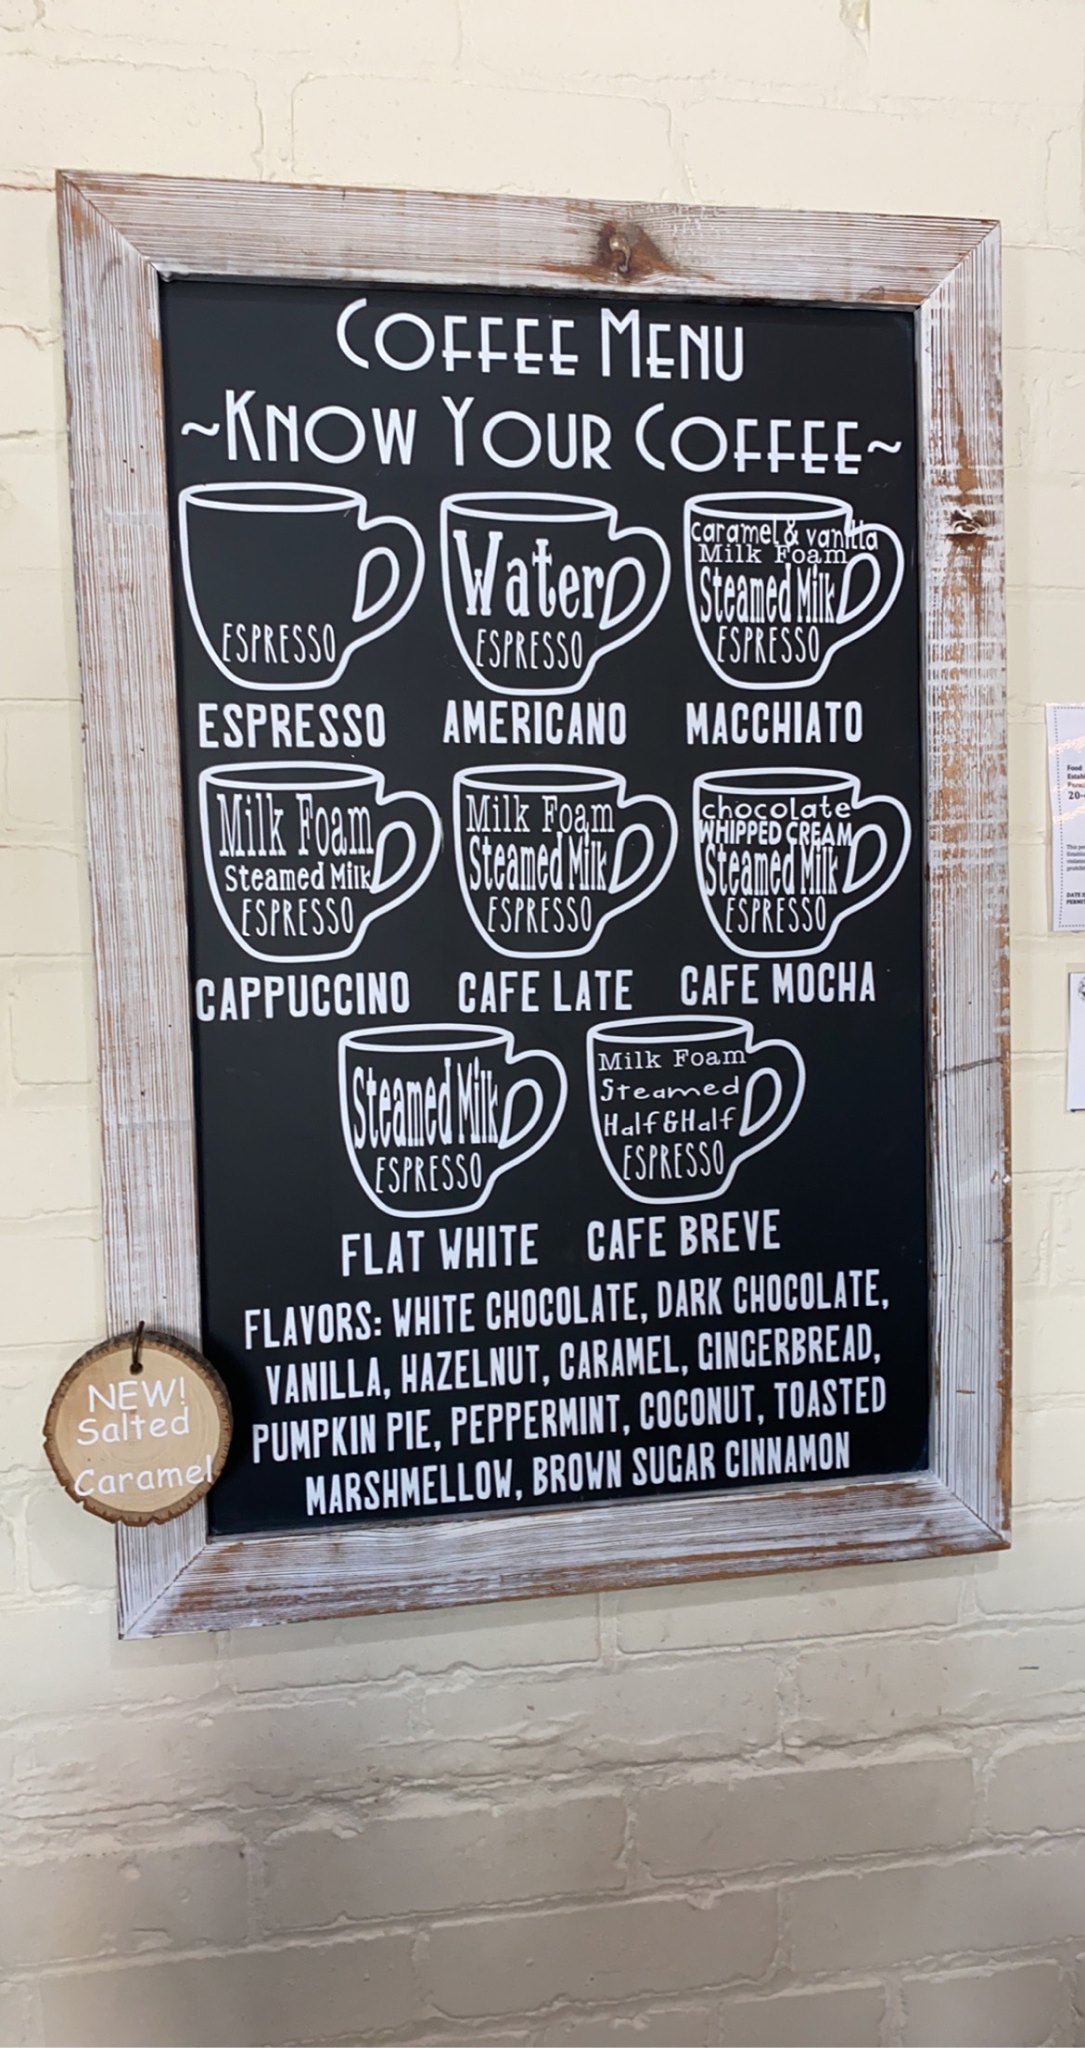 COFFEE MENU
~KNOW YOUR COFFEE~
ESPRESSO
ESPRESSO
Water
ESPRESSO
AMERICANO
caramel & vanilla
Milk Foam
Steamed Milk
ESPRESSO
MACCHIATO
Milk Foam
Steamed Milk
ESPRESSO
CAPPUCCINO
Milk Foam
Steamed Milk
ESPRESSO
CAFE LATE
chocolate
WHIPPED CREAM
Steamed Milk
ESPRESSO
CAFE MOCHA
Steamed Milk
ESPRESSO
FLAT WHITE
Milk Foam
Steamed
Half & Half
ESPRESSO
CAFE BREVE
FLAVORS: WHITE CHOCOLATE, DARK CHOCOLATE,
VANILLA, HAZELNUT, CARAMEL, GINGERBREAD,
PUMPKIN PIE, PEPPERMINT, COCONUT, TOASTED
MARSHMELLOW, BROWN SUGAR CINNAMON
NEW!
Salted
Caramel
Food